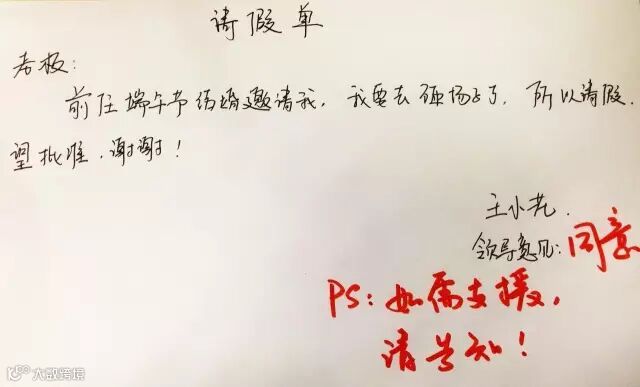 请假单
老板:
前任端午节结婚邀请我，我要去砸场子了，所以请假.
望批准，谢谢！
王小花.
领导意见:同意
PS:如需支援，
请告知！
大数跨境